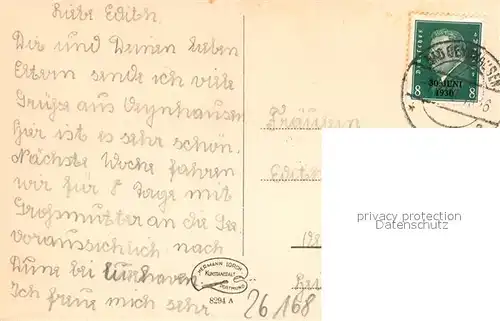 Liebe Edith.
Dir und Deinen lieben
Eltern sende ich viele
Grüße aus Oeynhausen
hier ist es sehr schön.
Nächste Woche fahren
wir für 8 Tage mit
Großmutter an die See
voraussichlich nach
Dune bei
Ich freue mich sehr.
DEUTSCHES REICH
8 8
30. JUNI
1930
BAD OEYNHAUSEN
Fräulein
Edith
privacy protection
Datenschutz
HERMANN LORCH
KUNSTANSTALT
DORTMUND
8294 A
26168